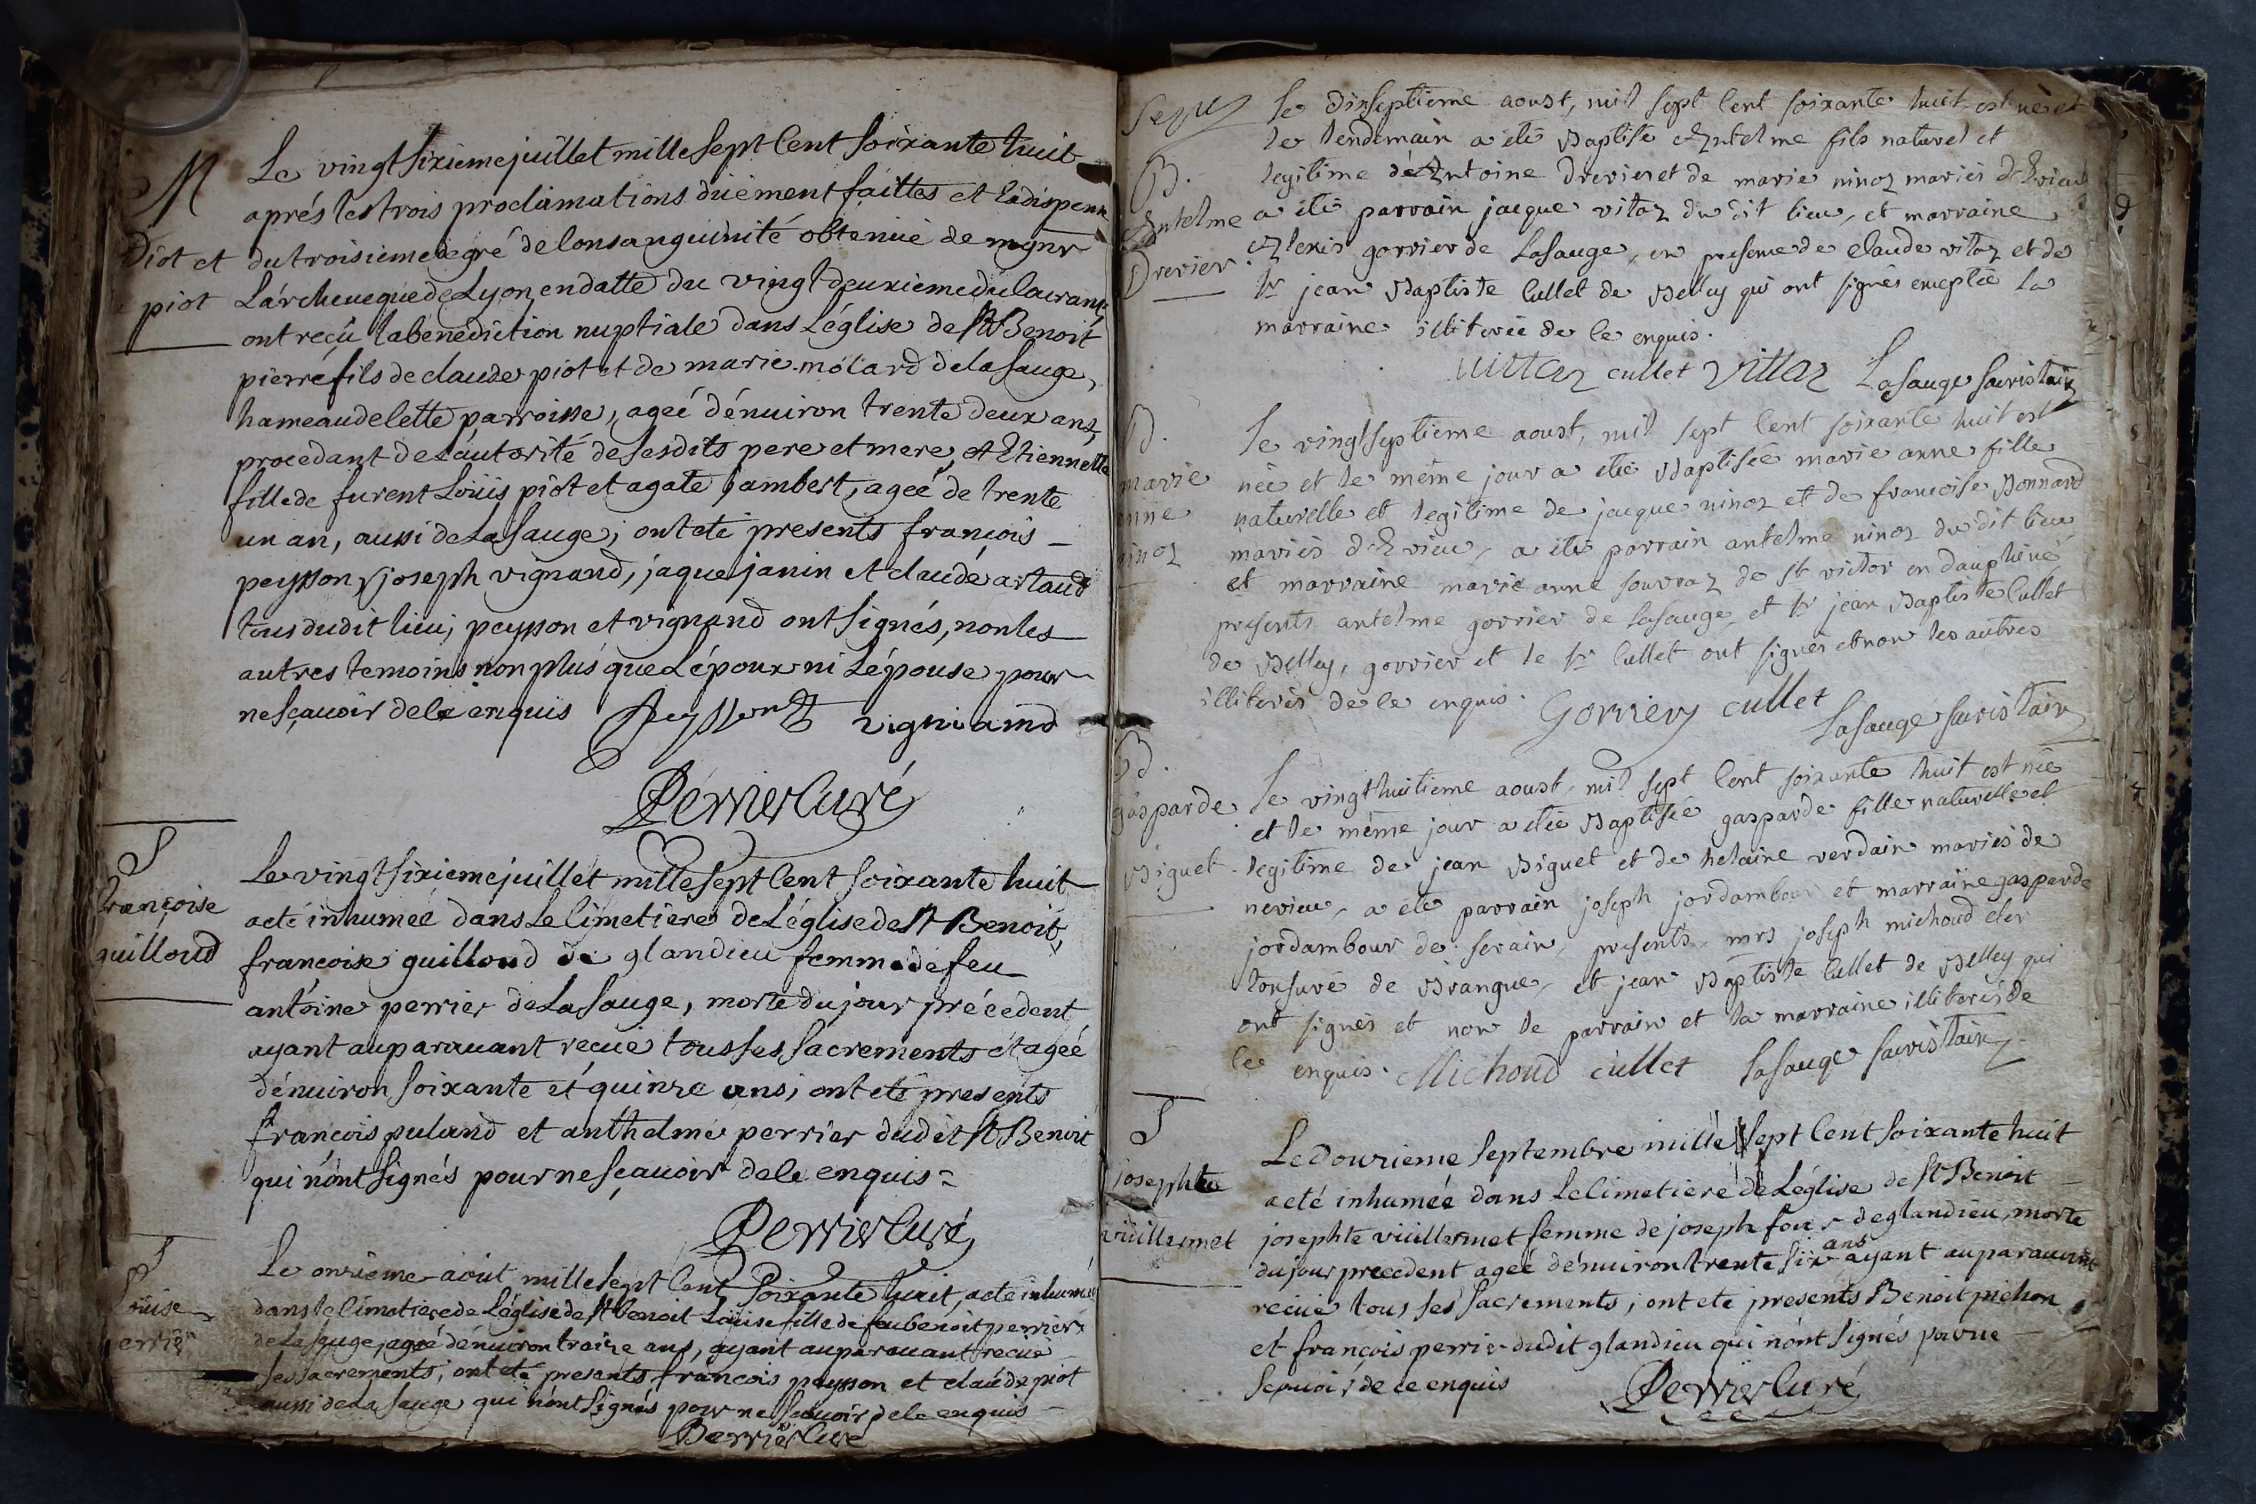 M
Piot et
piot
Le vingt sixieme juillet mille sept Cent soixante huit
aprés les trois proclamations düement faittes et la dispense
du troisieme degré de Consanguinité obtenüe de mgnr
L'archeueque de Lyon en datte du vingt deuxieme du Courant,
ont reçu la benediction nuptiale dans L'église de St Benoit
pierre fils de claude piot et de marie molard de la sauge,
hameau de Cette parroisse, ageé d'énuiron trente deux ans,
procedant de L'autorité de sesdits pere et mere, et Etiennette
fille de furent Loüis piot et agate jambert, ageé de trente
un an, aussi de La sauge; ont eté presents françois
peysson, joseph vignand, jaque janin et claude artaud
tous dudit lieu; peysson et vignand ont signés, non les
autres temoins non plus que L'époux ni L'épouse pour
ne sçauoir de Ce enquis Peysson vigniamd
Perrier Curé
S
françoise
guilloud
Le vingt sixieme juillet mille sept Cent soixante huit
a eté inhumeé dans Le Cimetiere de L'église de St Benoit,
françoise guilloud de glandieu femme de feu
antoine perrier de La sauge, morte du jour précedent
ayant auparauant recüe tous ses sacrements et ageé
d'énuiron soixante et quinze ans; ont eté presents
françois puland et anthelme perrier dudit St Benoit
qui n'ont signés pour ne sçauoir de Ce enquis =
Perrier Curé
S
Loüise
perrier
Le onzieme aout mille sept Cent soixante huit, a eté inhumeé
dans le Cimetiere de L'église de St benoit Loüise fille de feu benoit perrier
de La sauge, ageé d'énuiron treize ans, ayant auparauant recue
ses sacrements; ont eté presents françois peysson et claude piot
aussi de La sauge qui n'ont signés pour ne scauoir de Ce enquis
Perrier Curé
B.
Antelme
Drevier.
Le dixseptieme aoust, mil sept Cent soixante huit est né et
le lendemain a été Baptisé Antelme fils naturel et
legitime d'Antoine Drevier et de marie ninoz mariés d'Evieu
a été parrain jacque vitoz du dit lieu, et marraine
Alexis gorrier de Lasauge, en presence de claude vitoz et de
sr jean Baptiste Cullet de Belley qui ont signés exceptée la
marraine illiterée de Ce enquis.
vittoz cullet vittoz Lasauge sacristain
B.
marie
anne
ninoz
Le vingtseptieme aoust, mil sept Cent soixante huit est
née et le même jour a été Baptisée marie anne fille
naturelle et legitime de jacque ninoz et de francoise Bonnard
mariés d'Evieu, a été parrain antelme ninoz du dit lieu
et marraine marie anne souvraz de st victor en dauphiné
presents antelme gorrier de Lasauge, et sr jean Baptiste Cullet
de Belley, gorrier et le sr Cullet ont signés et non les autres
illiterés de Ce enquis. Gorriery cullet
Lasauge sacristain
B.
gasparde
Biguet
Le vingthuitieme aoust, mil sept Cent soixante huit est née
et le même jour a été Baptisée gasparde fille naturelle et
legitime de jean Biguet et de helaine verdain mariés de
nevieu, a été parrain joseph jordambour et marraine gasparde
jordambour de serain, presents mrs joseph michoud cler
tonsuré de Brangue, et jean Baptiste Cullet de Belley qui
ont signés et non le parrain et la marraine illiterés de
Ce enquis. Michoud cullet Lasauge sacristain
S
josephte
vüillermet
Le Douzieme septembre mille sept Cent soixante huit
a eté inhumeé dans Le Cimetiere de L'église de St Benoit
josephte vüillermet femme de joseph de glandieu, morte
du jour precedent ageé d'énuiron trente six ans ayant auparauant
recüe tous ses sacrements; ont eté presents Benoit pichon
et françois perrier dudit glandieu qui n'ont signés pour ne
scauoir de ce enquis Perrier Curé